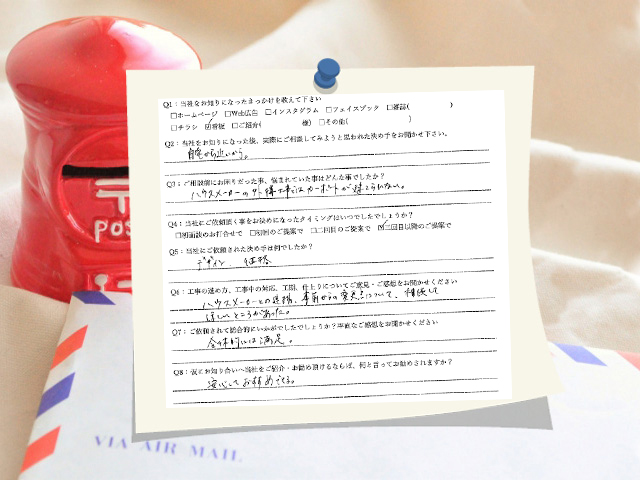 Q1：当社をお知りになったきっかけを教えて下さい
□ホームページ □Web広告 □インスタグラム □フェイスブック □雑誌( )
□チラシ ☑看板 □ご紹介( 様) □その他( )
Q2：当社をお知りになった後、実際にご相談してみようと思われた決め手をお聞かせ下さい。
自宅から近いから。
Q3：ご相談前にお困りだった事、悩まれていた事はどんな事でしたか？
ハウスメーカーの外構工事ではカーポートが建てられない。
Q4：当社にご依頼頂く事をお決めになったタイミングはいつでしたでしょうか？
□初面談のお打合せで □初回のご提案で □二回目のご提案で ☑三回目以降のご提案で
Q5：当社にご依頼された決め手は何でしたか？
デザイン 価格
Q6：工事の進め方、工事中の対応、工期、仕上りについてご意見・ご感想をお聞かせください
ハウスメーカーとの連携、事前からの変更点について、確認して
ほしいところがあった。
Q7：ご依頼されて総合的にいかがでしたでしょうか？率直なご感想をお聞かせください
全体的には満足。
Q8：仮にお知り合いへ当社をご紹介・お勧め頂けるならば、何と言ってお勧めされますか？
安心しておすすめできる。
POS
VIA AIR MAIL